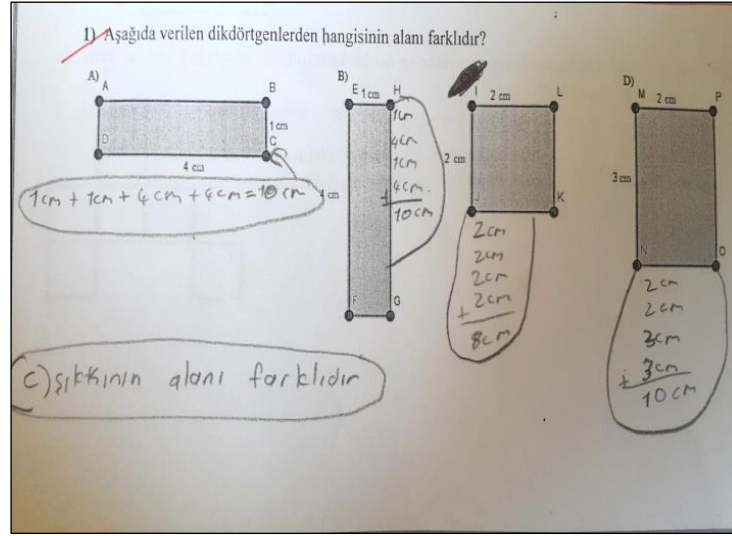 1) Aşağıda verilen dikdörtgenlerden hangisinin alanı farklıdır?
A)
A
B
D
C
1 cm
4 cm
1cm + 1cm + 4cm + 4cm = 10 cm
B)
E 1 cm H
cm
F
G
1cm
4cm
1cm
+ 4cm
10cm
I 2 cm L
2 cm
J
K
2cm
2cm
2cm
+ 2cm
8cm
D)
M 2 cm P
3 cm
N
O
2cm
2cm
3cm
+ 3cm
10 cm
C) şıkkının alanı farklıdır